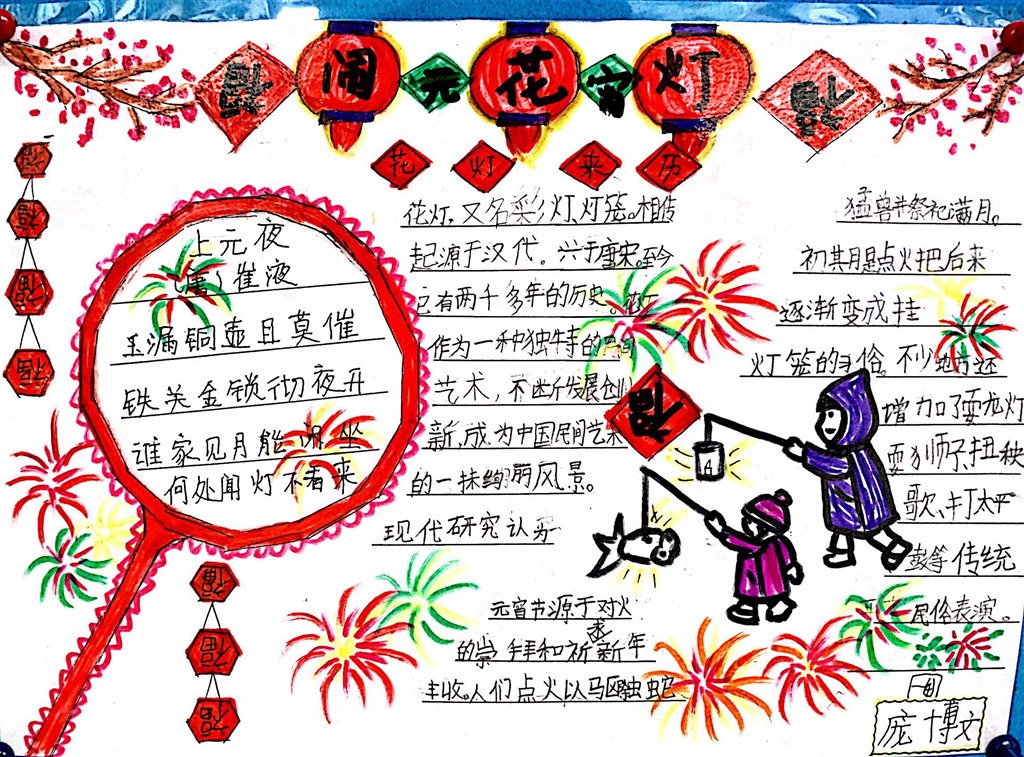 福 闹 元 花 宵 灯 福
花 灯 来 历
福
福
福
福
上元夜
崔液
玉漏铜壶且莫催
铁关金锁彻夜开
谁家见月能闲坐
何处闻灯不看来
福
福
福
花灯,又名彩灯、灯笼。相传
起源于汉代。兴于唐宋。至今
已有两千多年的历史。
作为一种独特的民间
艺术,不断发展创
新,成为中国民间艺术
的一抹绚丽风景。
现代研究认为
福
元宵节源于对火
的崇拜和祈求新年
丰收。人们点火以驱虫蛇
猛兽并祭祀满月。
初其月是点火把后来
逐渐变成挂
灯笼的习俗。不少地方还
增加了耍龙灯
耍狮子扭秧
歌、打太平
鼓等传统
民俗表演。
庞博文